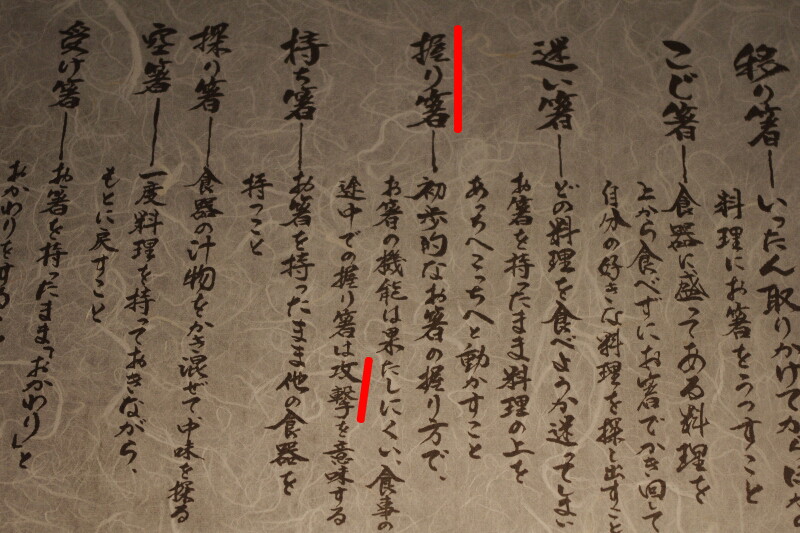 移り箸―いったん取りかけてから
料理にお箸をうつすこと
こじ箸―食器に盛ってある料理を
上から食べずにお箸でかき回して
自分の好きな料理を探し出すこと
迷い箸―どの料理を食べようか迷ってしまい
お箸を持ったまま料理の上を
あっちへこっちへと動かすこと
握り箸―初歩的なお箸の握り方で、
お箸の機能は果たしにくい、食事の
途中での握り箸は攻撃を意味する
持ち箸―お箸を持ったまま他の食器を
持つこと
探り箸―食器の汁物をかき混ぜて、中味を探る
空箸―一度料理を持っておきながら、
もとに戻すこと
受け箸―お箸を持ったまま「おかわり」と
おかわりをする